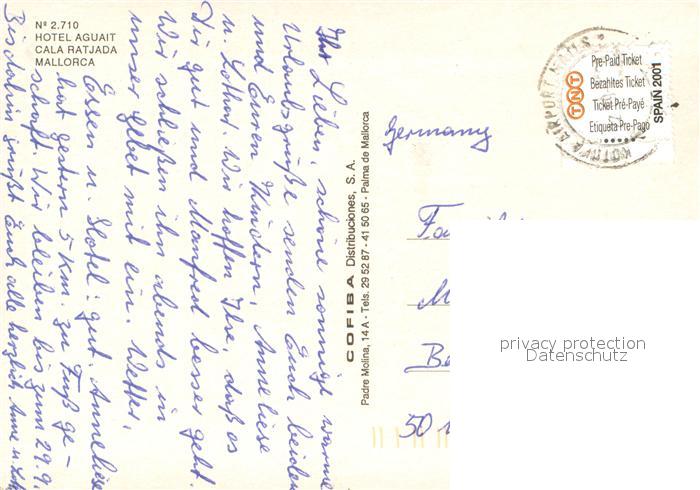 Nº 2.710
HOTEL AGUAIT
CALA RATJADA
MALLORCA
Ihr Lieben, schöne sonnige warme
Urlaubsgrüße senden Euch beiden
und Euren Kindern, Anneliese
u. Lothar. Wir hoffen Ilse, daß es
Dir gut und Manfred besser geht.
Wir schließen ihn abends in
unser Gebet mit ein. Wetter,
Essen u. Hotel: gut. Anneliese
hat gestern 5 Km. zu Fuß ge-
schafft. Wir bleiben bis zum 29.9.
Bis dahin grüßt Euch alle herzlich Anne u.
COFIBA Distribuciones, S. A.
Padre Molina, 14 A - Tels. 29 52 87 - 41 50 65 - Palma de Mallorca
Germany
TNT
Pre-Paid Ticket
Bezahltes Ticket
Ticket Pré-Payé
Etiqueta Pre-Pago
SPAIN 2001
AIRPORT
Fa
M
Be
50
privacy protection
Datenschutz